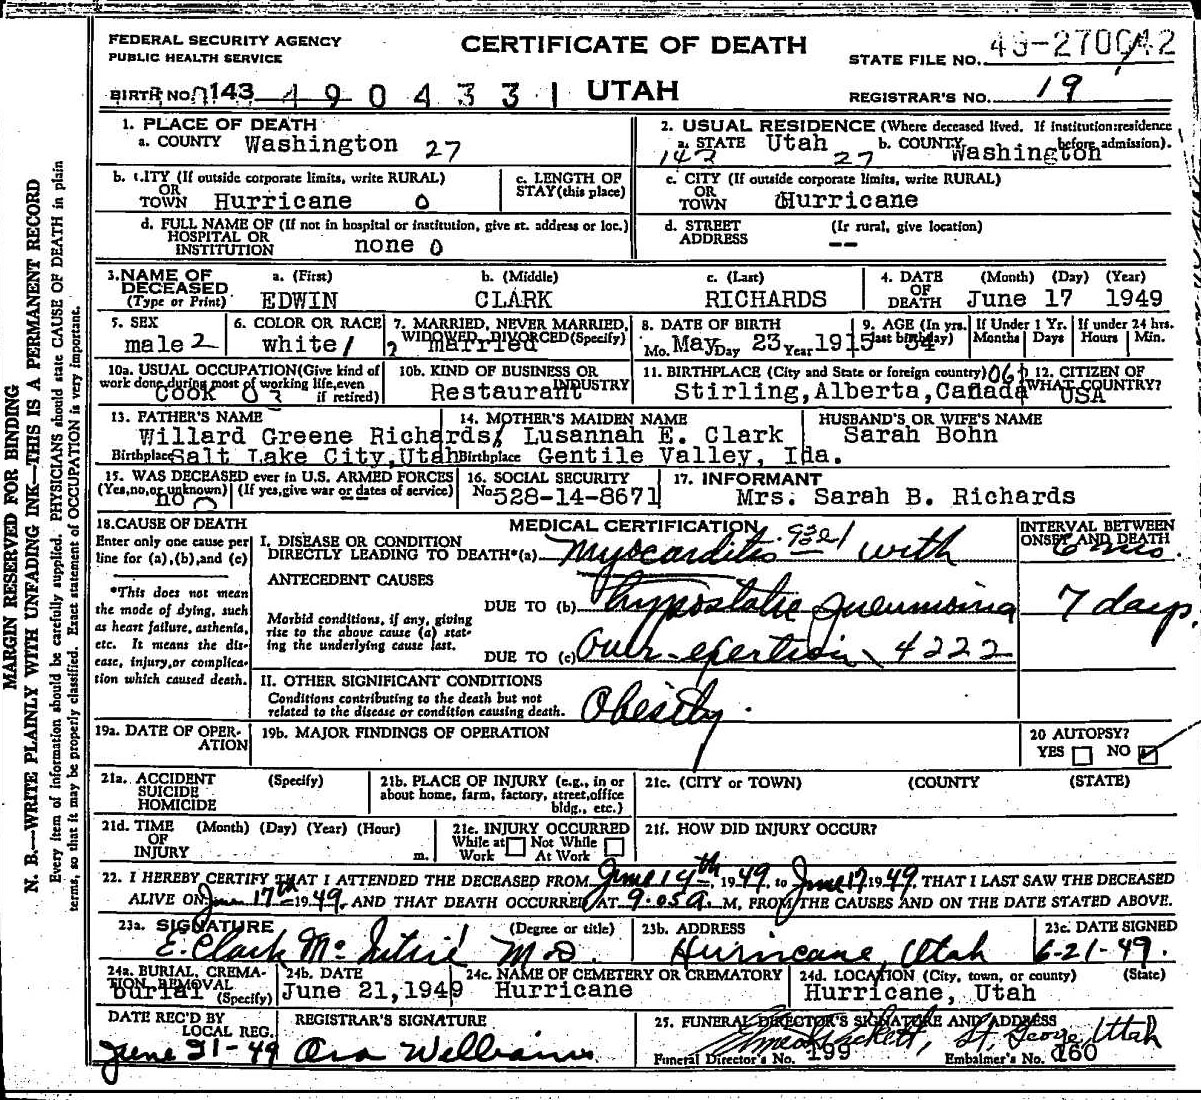 FEDERAL SECURITY AGENCY
PUBLIC HEALTH SERVICE
CERTIFICATE OF DEATH
STATE FILE NO.
BIRTH NO. 143 490433 1 UTAH
REGISTRAR'S NO. 19
1. PLACE OF DEATH
a. COUNTY Washington 27
2. USUAL RESIDENCE (Where deceased lived. If institution: residence before admission).
a. STATE Utah 27 b. COUNTY Washington
143
b. CITY (If outside corporate limits, write RURAL)
OR
TOWN Hurricane 0
c. LENGTH OF
STAY (this place)
c. CITY (If outside corporate limits, write RURAL)
OR
TOWN Hurricane
d. FULL NAME OF (If not in hospital or institution, give st. address or loc.)
HOSPITAL OR
INSTITUTION none 0
d. STREET (If rural, give location)
ADDRESS --
3. NAME OF DECEASED (Type or Print)
a. (First) b. (Middle) c. (Last)
EDWIN CLARK RICHARDS
4. DATE OF DEATH (Month) (Day) (Year)
June 17 1949
5. SEX
male 2
6. COLOR OR RACE
white 1
7. MARRIED, NEVER MARRIED,
WIDOWED, DIVORCED (Specify)
2 married
8. DATE OF BIRTH
Mo. May Day 23 Year 1915
9. AGE (In yrs. last birthday)
34
If Under 1 Yr. Months Days
If under 24 hrs. Hours Min.
10a. USUAL OCCUPATION (Give kind of
work done during most of working life, even
if retired)
Cook
10b. KIND OF BUSINESS OR
INDUSTRY
Restaurant
11. BIRTHPLACE (City and State or foreign country)
Stirling, Alberta, Canada
12. CITIZEN OF
WHAT COUNTRY?
USA
13. FATHER'S NAME
Willard Greene Richards
Birthplace Salt Lake City, Utah
14. MOTHER'S MAIDEN NAME
Lusannah E. Clark
Birthplace Gentile Valley, Ida.
HUSBAND'S OR WIFE'S NAME
Sarah Bohn
15. WAS DECEASED ever in U.S. ARMED FORCES
(Yes, no, or unknown) (If yes, give war or dates of service)
no --
16. SOCIAL SECURITY
No. 528-14-8671
17. INFORMANT
Mrs. Sarah B. Richards
18. CAUSE OF DEATH
Enter only one cause per
line for (a), (b), and (c)
*This does not mean
the mode of dying, such
as heart failure, asthenia,
etc. It means the dis-
ease, injury, or complica-
tion which caused death.
MEDICAL CERTIFICATION
INTERVAL BETWEEN
ONSET AND DEATH
I. DISEASE OR CONDITION
DIRECTLY LEADING TO DEATH* (a) Myocarditis with 6 mo.
ANTECEDENT CAUSES
DUE TO (b) Hypostatic pneumonia 7 days
Morbid conditions, if any, giving
rise to the above cause (a) stat-
ing the underlying cause last.
DUE TO (c) Over-exertion 4222
II. OTHER SIGNIFICANT CONDITIONS
Conditions contributing to the death but not
related to the disease or condition causing death.
Obesity.
19a. DATE OF OPER-
ATION
19b. MAJOR FINDINGS OF OPERATION
20 AUTOPSY?
YES NO
21a. ACCIDENT (Specify)
SUICIDE
HOMICIDE
21b. PLACE OF INJURY (e.g., in or
about home, farm, factory, street, office
bldg., etc.)
21c. (CITY or TOWN) (COUNTY) (STATE)
21d. TIME (Month) (Day) (Year) (Hour)
OF
INJURY m.
21e. INJURY OCCURRED
While at Work Not While At Work
21f. HOW DID INJURY OCCUR?
22. I HEREBY CERTIFY THAT I ATTENDED THE DECEASED FROM June 14th, 1949, to June 17 1949, THAT I LAST SAW THE DECEASED
ALIVE ON June 17th 1949, AND THAT DEATH OCCURRED AT 9:05 a. M, FROM THE CAUSES AND ON THE DATE STATED ABOVE.
23a. SIGNATURE (Degree or title)
E. Clark McIntire M.D.
23b. ADDRESS
Hurricane, Utah
23c. DATE SIGNED
6-21-49.
24a. BURIAL, CREMA-
TION, REMOVAL
(Specify)
burial
24b. DATE
June 21, 1949
24c. NAME OF CEMETERY OR CREMATORY
Hurricane
24d. LOCATION (City, town, or county) (State)
Hurricane, Utah
DATE REC'D BY
LOCAL REG.
June 21-49
REGISTRAR'S SIGNATURE
Ora Williams
25. FUNERAL DIRECTOR'S SIGNATURE AND ADDRESS
St. George, Utah
Funeral Director's No. 199 Embalmer's No. 160
MARGIN RESERVED FOR BINDING
N. B.—WRITE PLAINLY WITH UNFADING INK—THIS IS A PERMANENT RECORD
Every item of information should be carefully supplied. PHYSICIANS should state CAUSE OF DEATH in plain
terms, so that it may be properly classified. Exact statement of OCCUPATION is very important.